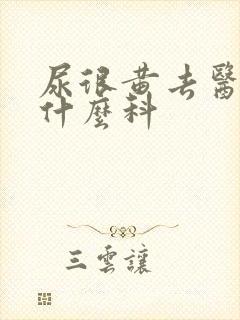 尿很黄去醫
什麼科
三雲讓